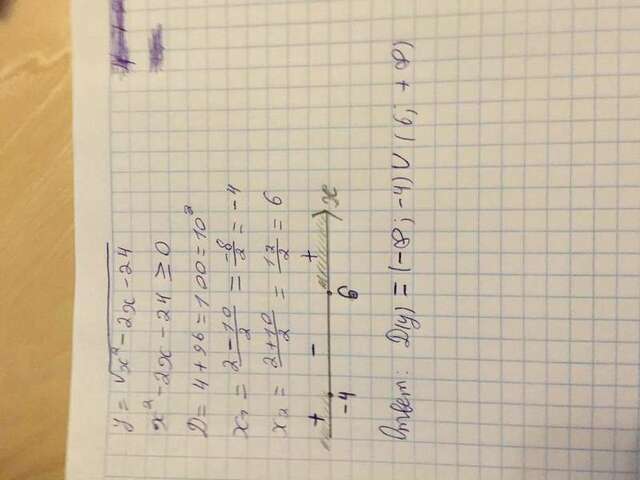 y = √x² - 2x - 24
x² - 2x - 24 ≥ 0
D = 4 + 96 = 100 = 10²
x₁ = (2 - 10)/2 = -8/2 = -4
x₂ = (2 + 10)/2 = 12/2 = 6
+ - +
-4 6 x
Ответ: D(y) = (-∞; -4) ∪ (6; +∞)